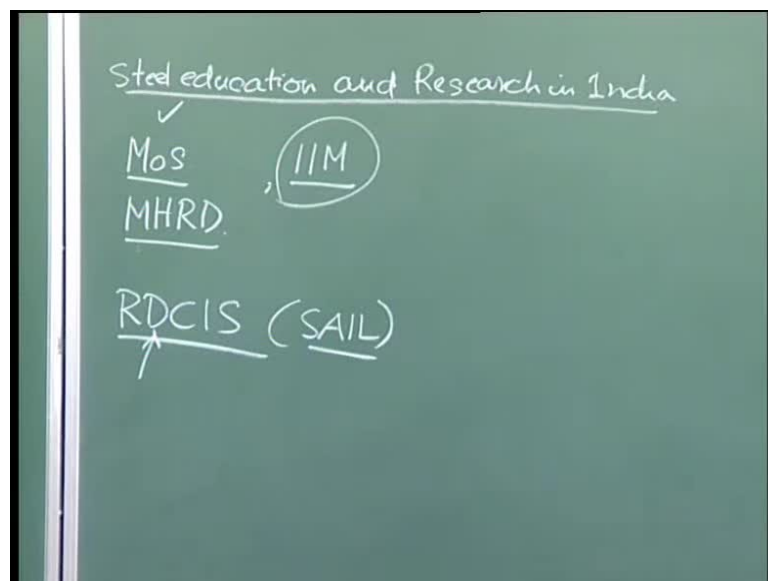 Steel education and Research in India
MoS , IIM
MHRD.
RDCIS (SAIL)